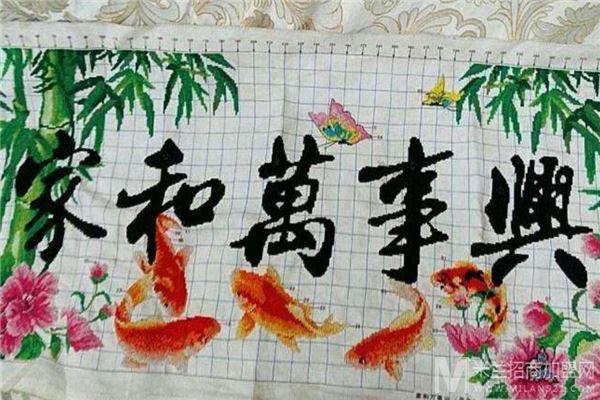 家和萬事興
米兰招商加盟网
WWW.MILAN925.COM